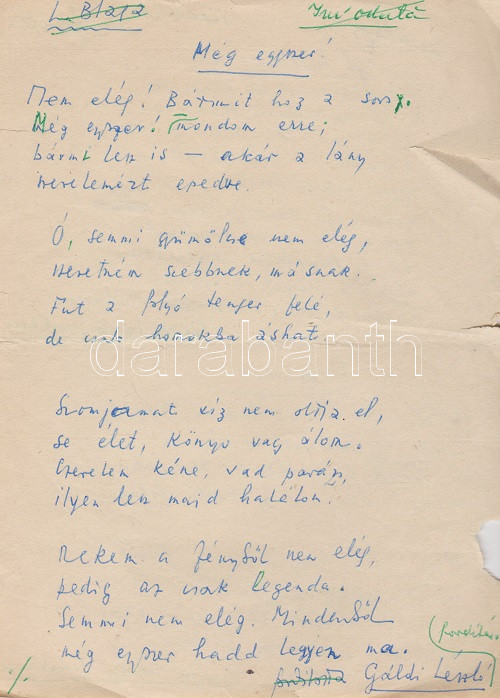 L. Blaga
Még egyszer!
Nem elég! Bármit hoz a sors,
Még egyszer! mondom erre;
bármi lesz is — akár a lány
szerelemért epedve.
Ó, semmi gyümölcse nem elég,
szeretném szebbnek, másnak.
Fut a folyó tenger felé,
de csak homokba áshat.
darabanth
Szomjamat víz nem oltja el,
se élet, könyv vagy álom.
Szerelem kéne, vad parázs,
ilyen lesz majd halálom.
Nekem a fényből nem elég,
pedig az csak legenda.
Semmi nem elég. Mindenből
még egyszer hadd legyen ma.
fordította Gáldi László